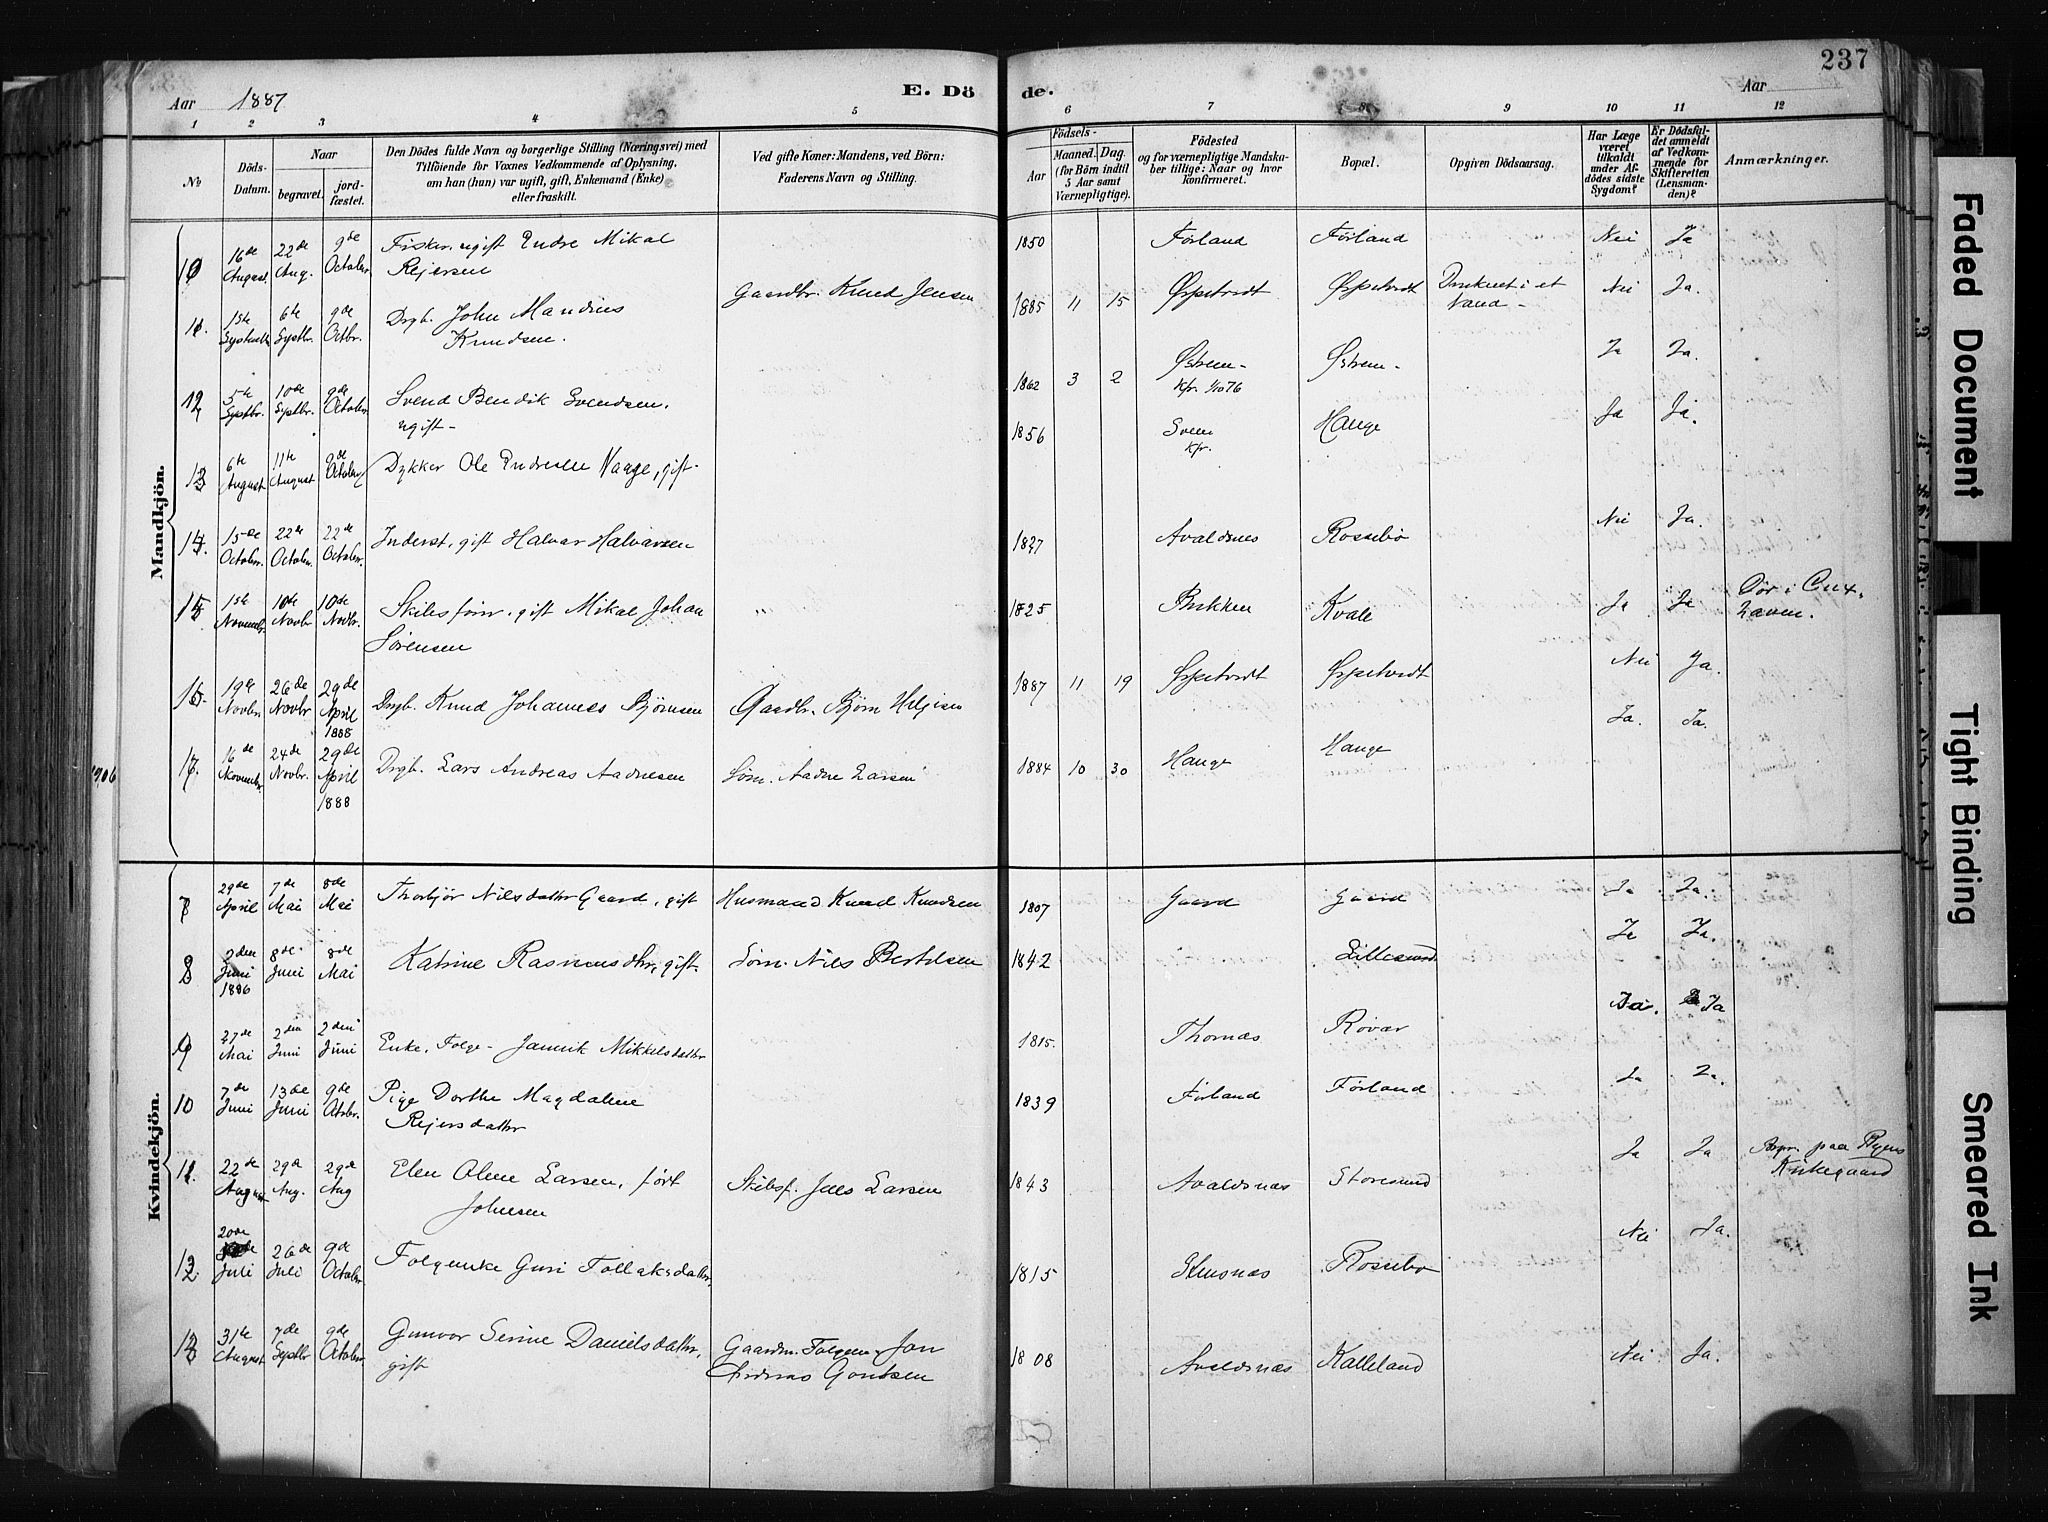 237
Aar 1887
E. Dö
de.
Aar
1 2 3 4 5 6 7 8 9 10 11 12
No
Döds-
Datum.
Naar
begravet.
jord-
fæstet.
Den Dödes fulde Navn og borgerlige Stilling (Næringsvei) med
Tilföiende for Voxnes Vedkommende af Oplysning,
om han (hun) var ugift, gift, Enkemand (Enke)
eller fraskilt.
Ved gifte Koner: Mandens, ved Börn:
Faderens Navn og Stilling.
Födsels-
Aar
Maaned. Dag.
(for Börn indtil
5 Aar samt
Værnepligtige).
Födested
og for værnepligtige Mandska-
ber tillige: Naar og hvor
konfirmeret.
Bopæl.
Opgiven Dödsaarsag.
Har Læge
været
tilkaldt
under Af-
dödes sidste
Sygdom?
Er Dödsfal-
det anmeldt
af Vedkom-
mende for
Skifteretten
(Lensman-
den)?
Anmærkninger.
Mandkjön.
10 16de August 22de Aug. 9de Octobr. Fisker, ugift Endre Mikal 1850 Førland Førland Nei Ja
Reiersen
11. 1ste Septbr. 6te Septbr. 9de Octbr. Drgb. John Mandius Gaardbr. Knud Jensen 1885 11 15 Øspetvedt Øspetvedt Druknet i et Nei Ja.
Knudsen. Vand -
12 5te Septbr. 10de Septbr. 9de Octobr. Svend Bendik Svendsen, 1862 3 2 Østrem - Østrem - Ja Ja.
ugift - Kfr. 1/10 76
13 6te August 11te August 9de Octobr. Dykker Ole Endresen Vaage, gift - 1856 Sveen Hauge Ja Ja.
Kfr.
14. 15de Octobr. 22de Octobr. 22de Octobr. Inderst, gift Halvar Halvarsen 1827 Avaldsnes Rossebø Nei Ja.
15 1ste Novembr. 10de Novbr 10de Novbr. Skibsfører, gift Mikal Johan " 1825 Bukken Kvale Ja Ja Dør i Cux-
Sørensen haven.
16. 19de Novbr. 26de Novbr 29de April 1888 Drgb. Knud Johannes Bjørnsen Gaardbr. Bjørn Helgesen 1887 11 19 Øspetvedt Øspetvedt Nei Ja.
17. 16de Novembr. 24de Novbr. 29de April 1888 Drgb. Lars Andreas Aadnesen Søm. Aadne Larsen 1884 10 30 Hauge Hauge Ja. Ja.
Kvindekjön.
7 29de April 7de Mai 8de Mai Thorbjør Nilsdatter Gaard, gift Husmand Knud Knudsen 1807 Gaard Gaard Ja Ja.
8 2den Juni 1886 8de Juni 8de Mai Katrine Rasmusdtr, gift - Søm. Nils Bertelsen 1842 Lillesund. Ja Ja.
9 27de Mai 2den Juni 2den Juni Enke, Folge - Jannik Mikkelsdatter 1815. Thornæs Røvær Ja. Ja
10 7de Juni 13de Juni 9de Octbr. Pige Dorthe Magdalene 1839 Førland Førland Ja Ja.
Reiersdatter
11. 22de August 29de Aug. 29de Aug Elen Oline Larsen, født Skibsf. Jens Larsen 1843 Avaldsnæs Storesund Ja Ja Begr. paa Byens
Johnsen Kirkegaard
12. 20de Juli 26de Juli 9de Octobr. Folgeenke Guri Tollaksdatter 1815 Stensnæs Rossebø Nei Ja.
13 31te August 7de Septbr 9de Octobr. Gunvor Serine Danielsdatter, Gaardm. Folgem. Jon 1808 Avaldsnæs Kalleland Nei. Ja.
gift Andreas Gautesen
Faded Document
Tight Binding
Smeared Ink